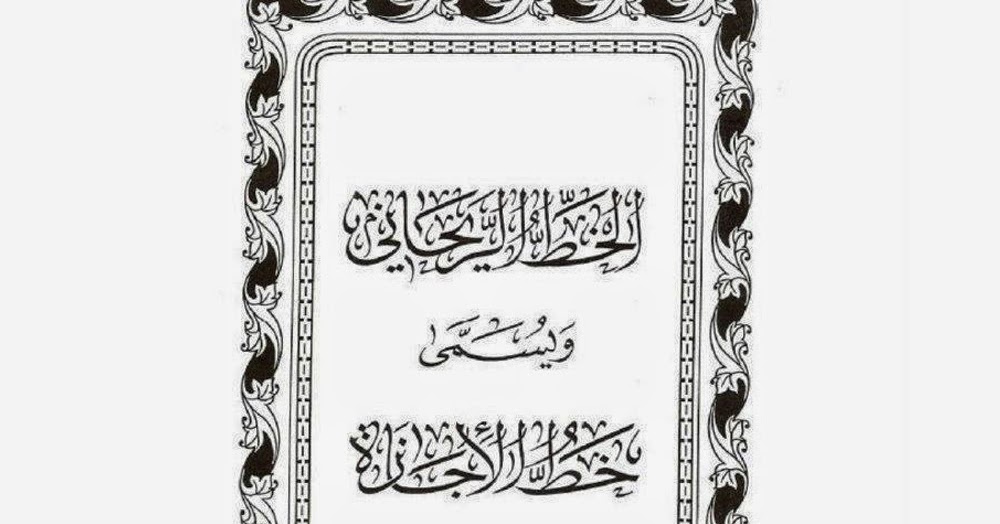 الخطُّ الرَّيحَاني
وَيُسَمَّى
خَطُّ الأجازَة